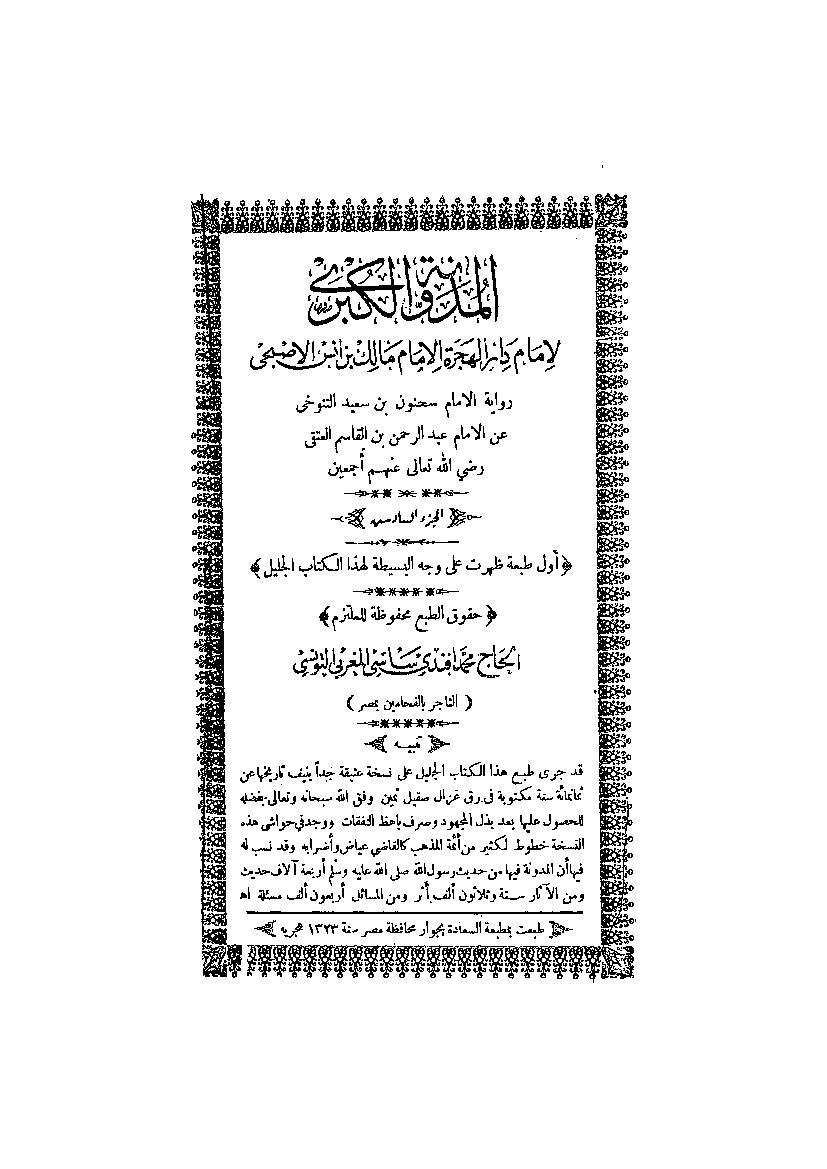 المدونة الكبرى
لإمام دار الهجرة الإمام مالك بن أنس الأصبحى
رواية الامام سحنون بن سعيد التنوخى
عن الامام عبد الرحمن بن القاسم العتقى
رضي الله تعالى عنهم أجمعين
الجزء السادس
﴿أول طبعة ظهرت على وجه البسيطة لهذا الكتاب الجليل﴾
﴿حقوق الطبع محفوظة للملتزم﴾
الحاج محمد افندى ساسى المغربى التونسى
( التاجر بالفحامين بمصر )
تنبيه
قد جرى طبع هذا الكتاب الجليل على نسخة عتيقة جداً ينيف تاريخها عن
ثمانمائة سنة مكتوبة فى رق غزال صقيل ثمين وفق الله سبحانه وتعالى بفضله
للحصول عليها بعد بذل المجهود وصرف باهظ النفقات ووجد فى حواشى هذه
النسخة خطوط لكثير من أئمة المذهب كالقاضي عياض وأضرابه وقد نسب له
فيها أن المدونة فيها من حديث رسول الله صلى الله عليه وسلم أربعة آلاف حديث
ومن الآثار ستة وثلاثون ألف أثر ومن المسائل أربعون ألف مسئلة اه
طبعت بمطبعة السعادة بجوار محافظة مصر سنة ١٣٢٣ هجريه